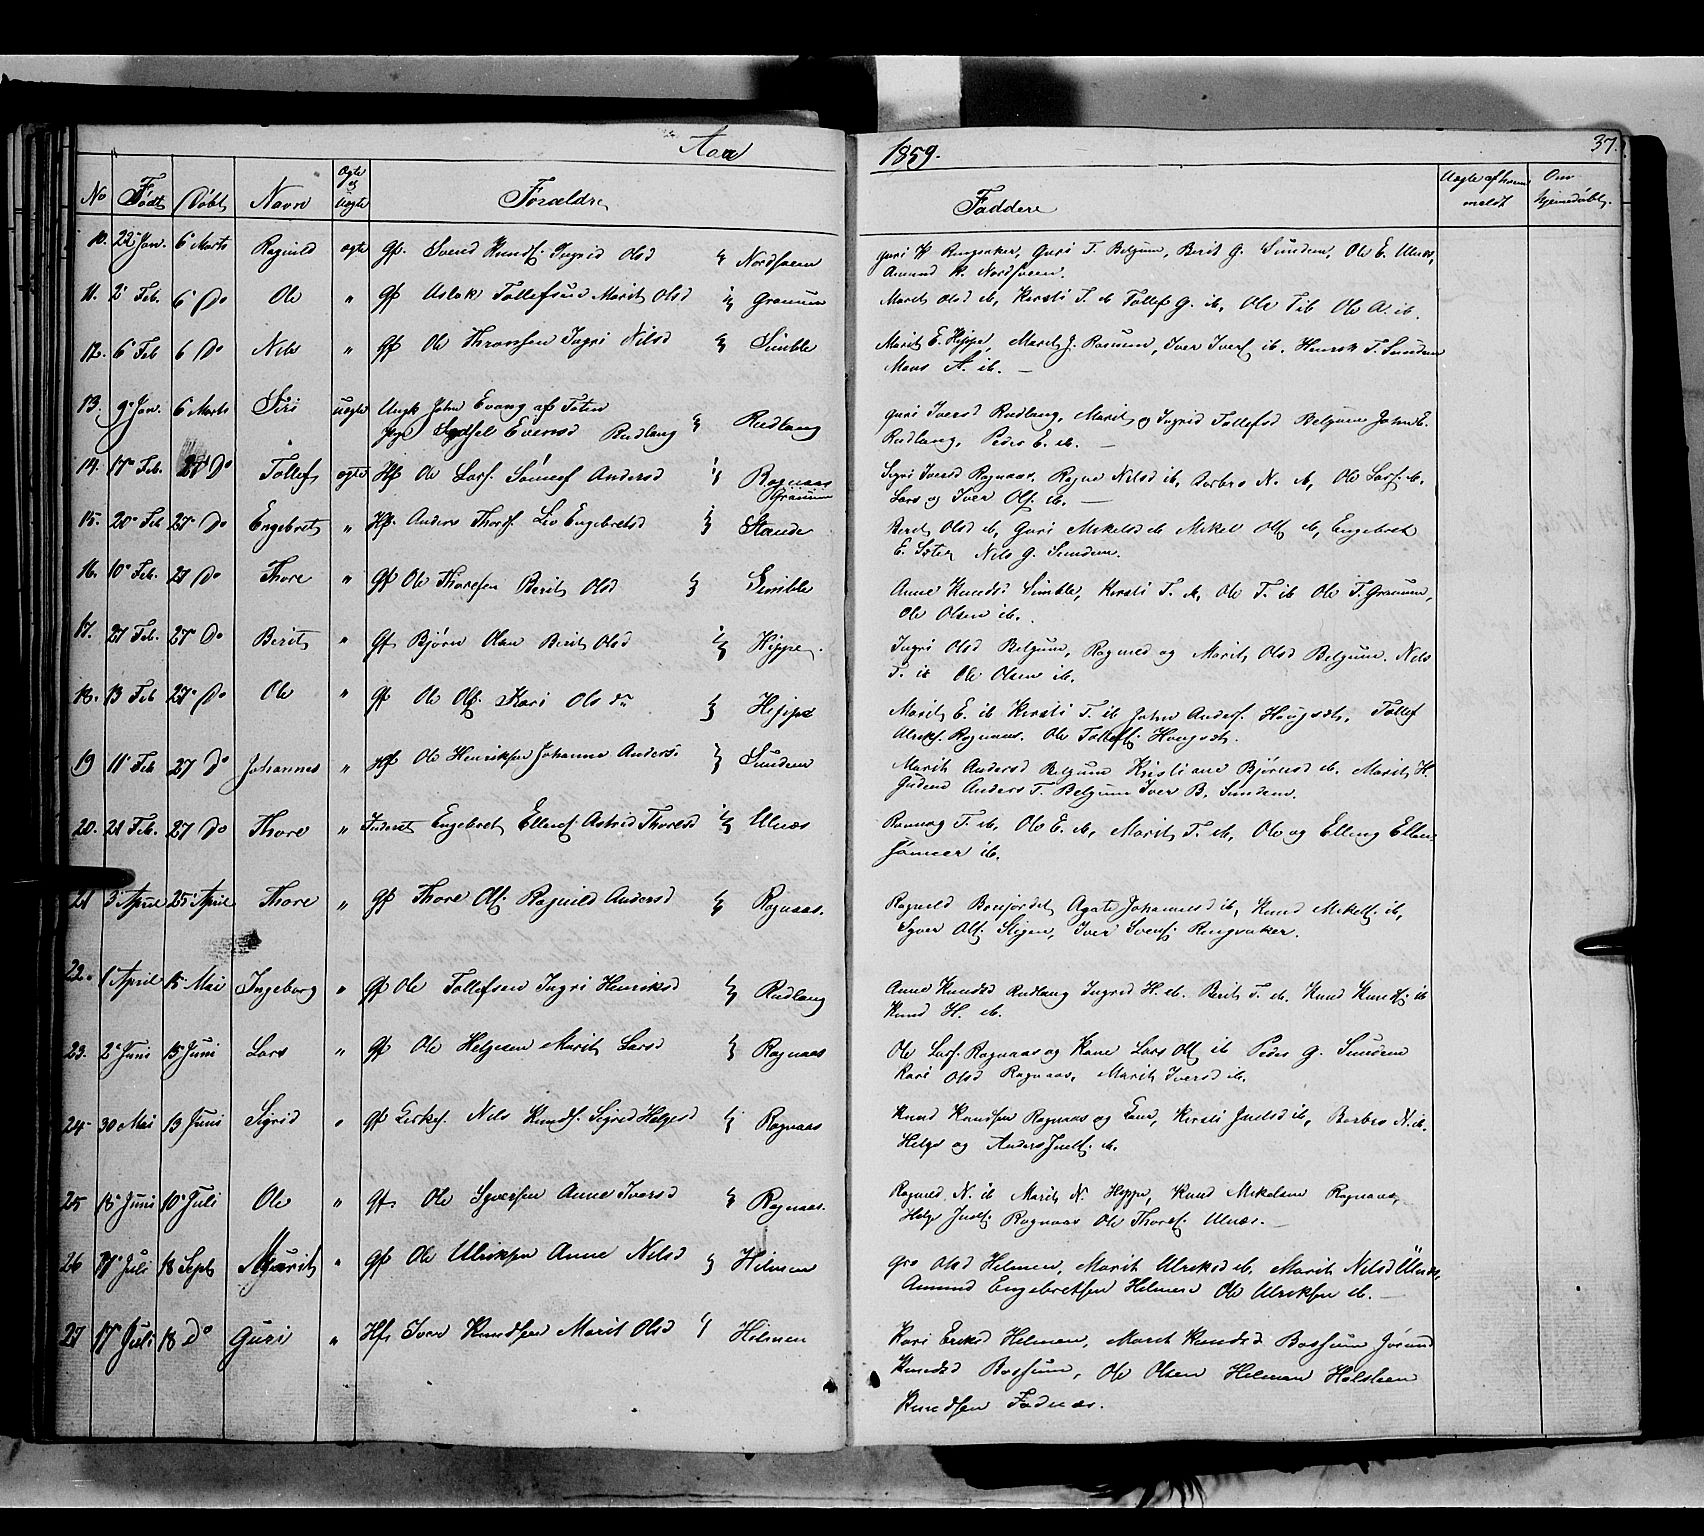 Aar 1859. 37.
No Født Døbt Navn Ægte og Uægte Forældre Faddere Uægte af hvem meldt Om hjemmedøbt.
10. 22 Jan. 6 Marts Ragnild ægte Gf. Svend Knuds. Ingrid Olsd Nordsveen
Guri K Ringsaker, Guri T. Belgum, Berit G. Sundem, Ole E. Ulnæs,
Amund K. Nordsveen.
11. 2 Feb. 6 Do Ole " Gf Aslak Tollefsen Marit Olsd Granum
Marit Olsd ib, Kersti T. ib Tollef G. ib, Ole T ib Ole A. ib.
12. 6 Feb 6 Do Nels " Gf Ole Thronsen Ingri Nilsd Simble
Marit E. Hippe, Marit J. Rosum, Iver Ivers. ib. Henrik T. Sundem
Mons A. ib. —
13. 9 Jan. 6 Marts Siri uægte Ungk John Evang af Toten
Pige Sydsel Evensd Rudlang Rudlang
Guri Iversd Rudlang, Marit og Ingrid Tollefsd Belgum John E.
Rudlang, Peder E. ib. —
14. 17 Feb. 27 Do Tollef ægte Hf Ole Lars. Andersd Rognaas
Granum
Sigri Iversd Rognaas, Ragne Nilsd ib, Barbro N. ib, Ole Lars. ib.
Lars og Iver Ols. ib. —
15. 20 Feb 27 Do Engebret " Hf. Anders Thords. Liv Engebretsd Strande
Berit Olsd ib, Guri Mikelsd ib Mikel Ols ib, Engebret
E. Sæter Nils G. Sundem.
16. 10 Feb. 27 Do Thore " Gf Ole Thoresen Berit Olsd Simble
Anne Knudsd Simble, Kersti T. ib, Ole T. ib Ole T. Granum,
Ole Olsen ib.
17. 27 Feb. 27 Do Berit " Gf Bjørn Olsen Berit Olsd Hippe.
Ingri Olsd Belgum, Ragned og Marit Olsd Belgum. Nils
T. ib Ole Olsen ib.
18. 13 Feb 27 Do Ole " Gf Ole Ols. Kari Olsdr Hippe
Marit E. ib Kersti T. ib John Anders. Haugsæt. Tollef
Ulriks. Rognaas. Ole Tollefs. Haugsæt.
19 11 Feb 27 Do Johannes " Hf Ole Henriksen Johanne Anders. Sundem
Marit Andersd Belgum Kristiane Bjørnsd ib. Marit H.
Gudem Anders T. Belgum Iver B. Sundem.
20. 21 Feb. 27 Do Thore " Inderst Engebret Ellens. Astrid Thoresd Ulnæs
Rannog T. ib. Ole E. ib, Marit T. ib, Ole og Elling Ellen-
sønner ib.
21 3 April 25 April Thore " Gf Thore Ols. Ragnild Andersd Rognaas.
Ragnild Bonfordet, Agate Johannesd ib, Knud Mikels. ib,
Syver Ols. Stigen, Iver Svens. Ringsaker.
22. 1 April 15 Mai Ingeborg " Gf Ole Tollefsen Ingri Henriksd Rudlang
Anne Knudsd Rudlang Ingrid H. ib. Berit T. ib. Knud Knuds. ib
Knud H. ib.
23. 2 Juni 15 Juni Lars " Gf Ole Helgesen Marit Larsd Rognaas
Ole Lars. Rognaas og Kone Lars Ols ib Peder G. Sundem
Kari Olsd Rognaas, Marit Iversd ib.
24 30 Mai 13 Juni Sigrid " Gf Nils Knuds. Sigrid Helgesd Rognaas
Knud Knudsen Rognaas og Kone, Kersti Juulsd ib, Barbro N. ib.
Helge og Anders Juuls. ib.
25 18 Juni 10 Juli Ole " Gf Ole Syversen Anne Iversd Rognaas.
Ragned N. ib Marit N. Hippe, Knud Mikelsen Rognaas,
Helge Juuls. Rognaas Ole Thores. Ulnæs. —
26 Juli 18 Sept Marit " Gf Ole Ulriksen Anne Nilsd Hilmen
Gro Olsd Hilmen, Marit Ulriksd ib, Marit Nilsd Ulnæs,
Amund Engebretsen Hilmen Ole Ulriksen ib. —
27 17 Juli 18 Do Guri " Hf Iver Knudsen Marit Olsd Hilmen
Kari Eriksd Hilmen, Marit Knudsd Bossum Jørund
Knudsd Bossum, Ole Olsen Hilmen Halsteen
Knudsen Fodnæs.